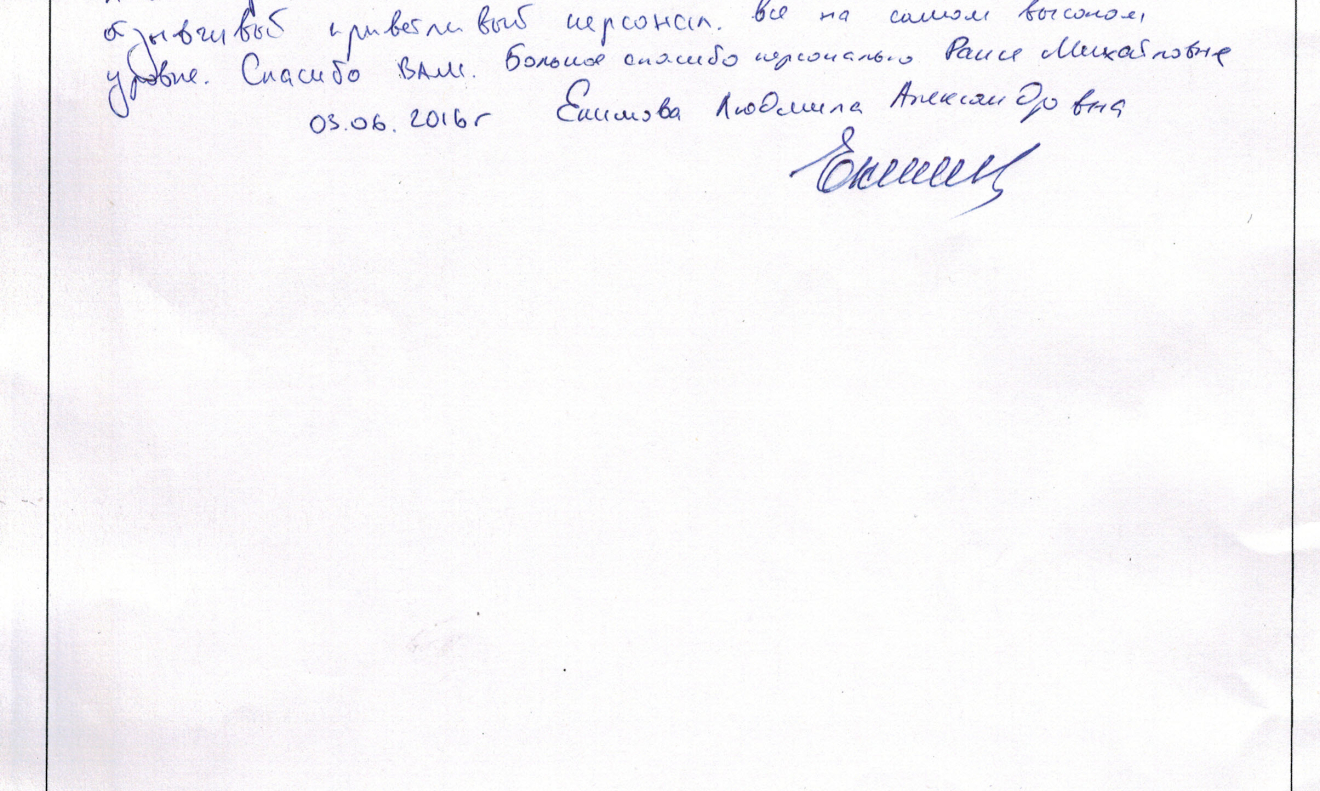 отзывчивый приветливый персонал. Все на самом высоком
уровне. Спасибо ВАМ. Большое спасибо персонально Раисе Михайловне
03.06.2016г Екимова Людмила Александровна